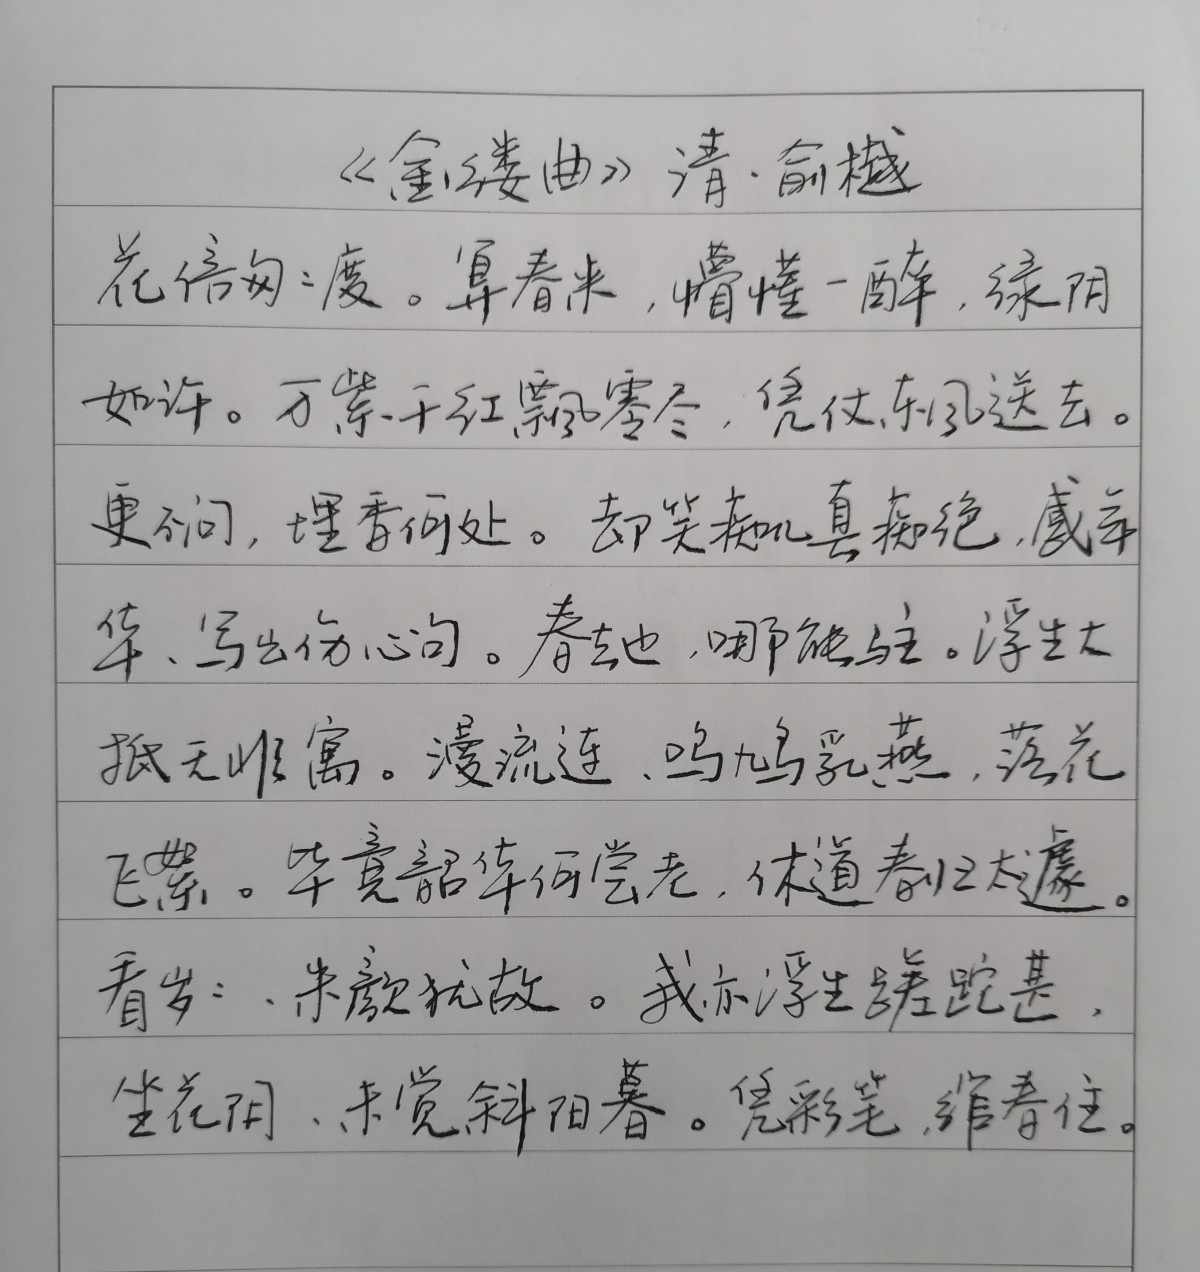 《金缕曲》清·俞樾
花信匆匆度。算春来，懵懂一醉，绿阴
如许。万紫千红飘零尽，凭仗东风送去。
更不问，埋香何处。却笑痴儿真痴绝，感年
华、写出伤心句。春去也，哪能驻。浮生大
抵无非寓。漫流连、鸣鸠乳燕，落花
飞絮。毕竟韶华何尝老，休道春归太遽。
看岁岁、朱颜犹故。我亦浮生蹉跎甚，
坐花阴、未觉斜阳暮。凭彩笔，绾春住。